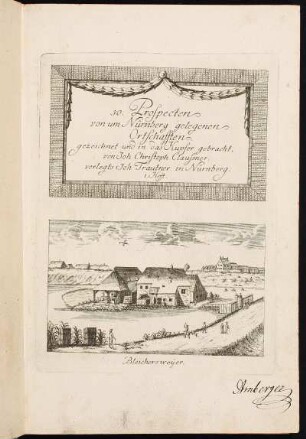 30. Prospecten
von um Nürnberg gelegenen
Ortschafften
gezeichnet und in das Kupfer gebracht
von Joh. Christoph Claussner.
verlegts Joh. Trautner in Nürnberg.
1. Heft
Bleichersweyer.
Amberger